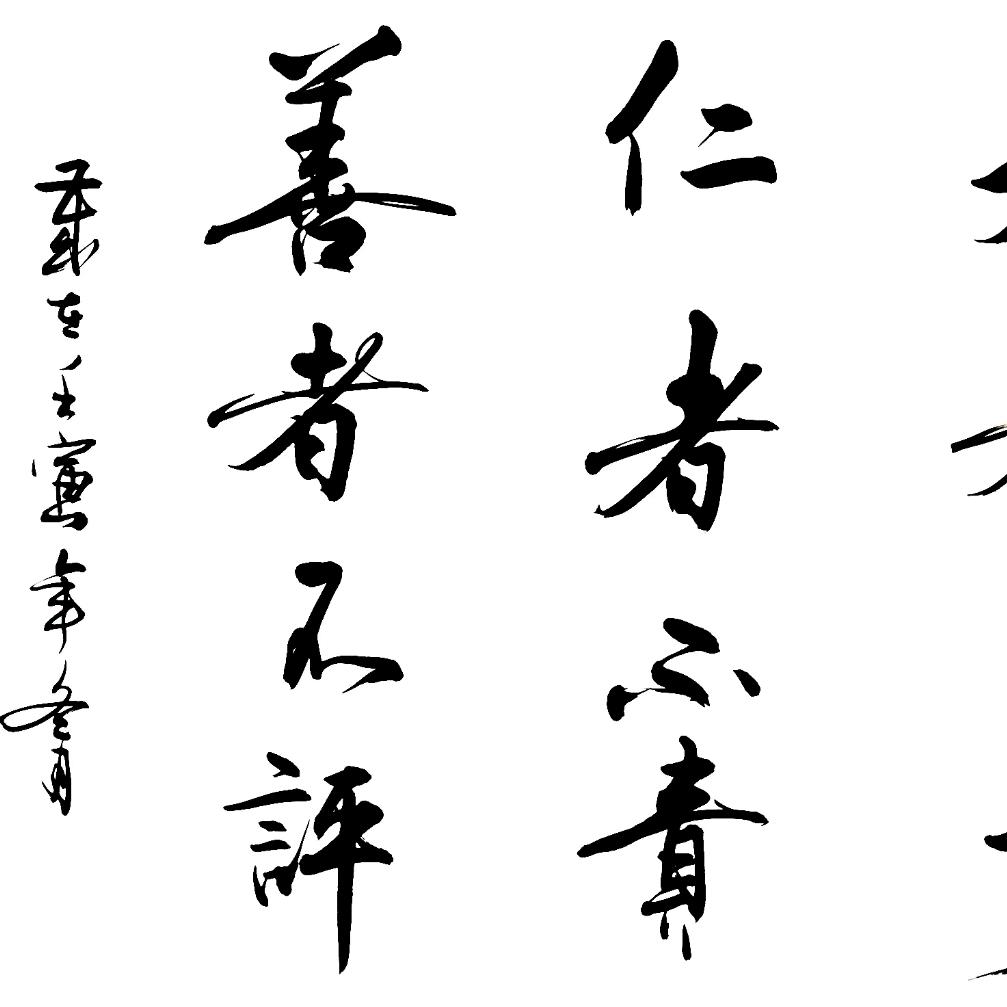 仁者不責
善者不評
歲在壬寅年冬月